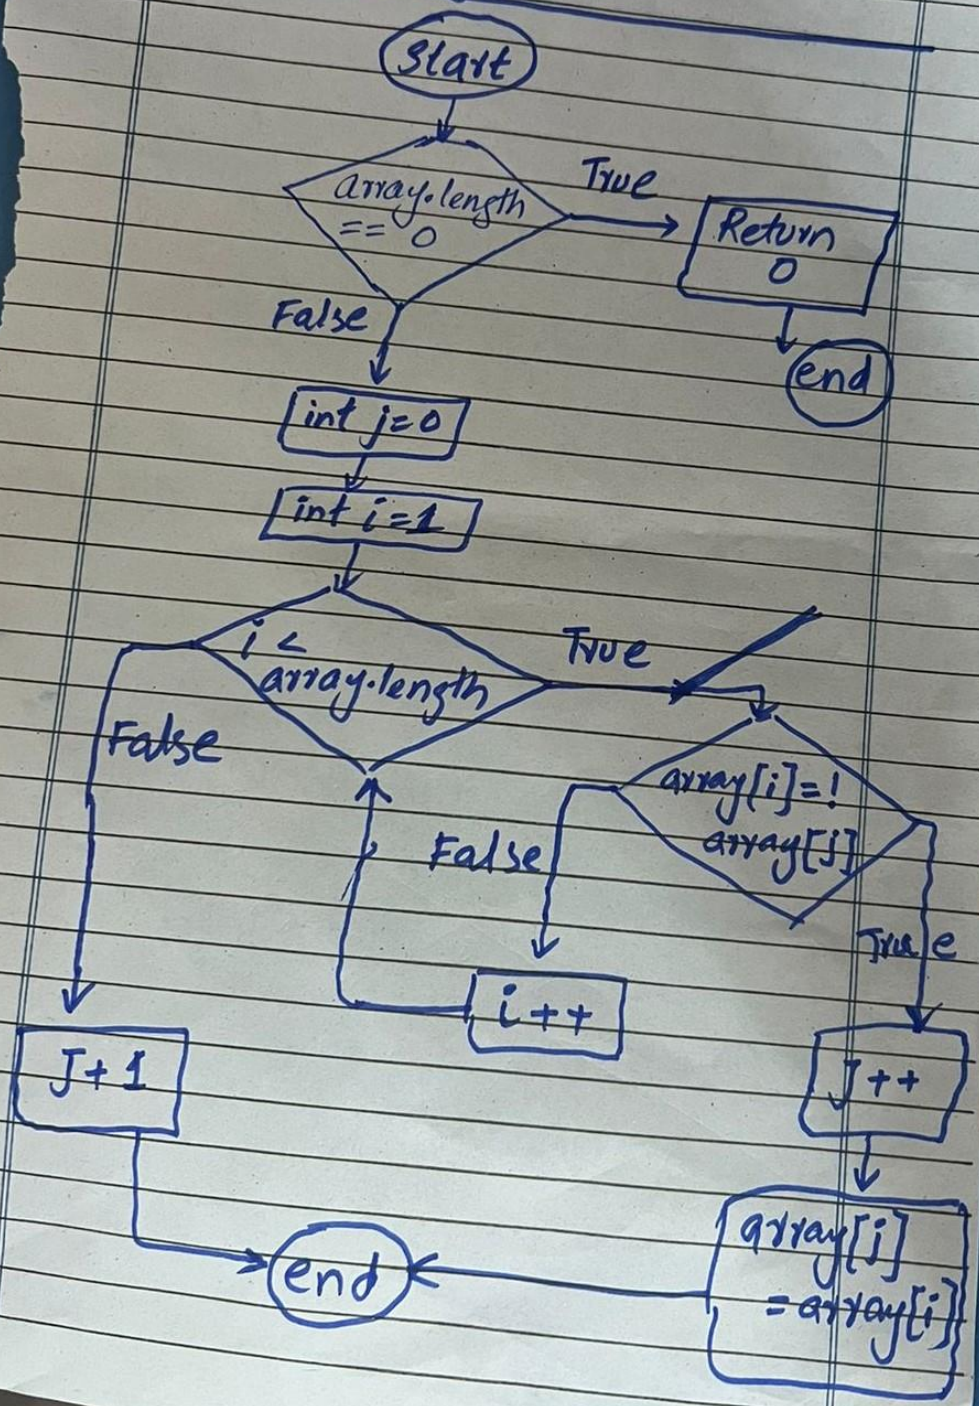 Start
array.length
== 0
True
Return
0
end
False
int j=0
int i=1
i <
array.length
True
False
array[i]=!
array[j]
False
True
i++
J+1
J++
array[j]
=array[i]
end